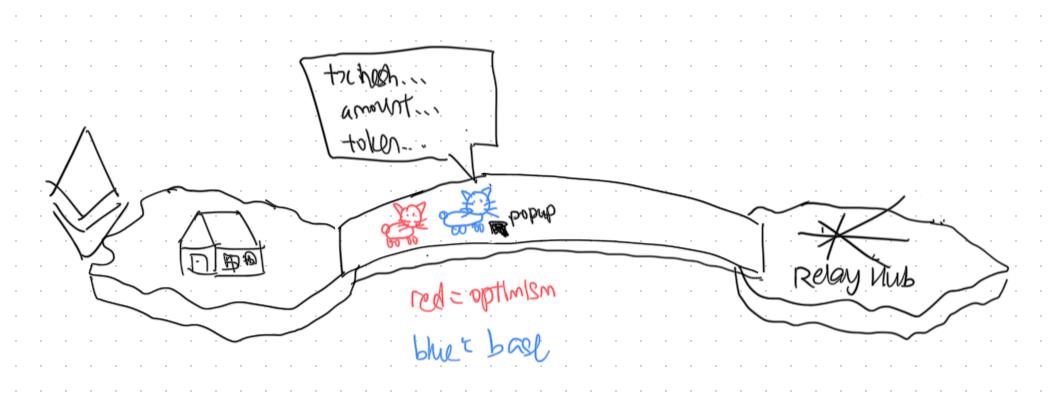 tx hash...
amount...
token...
popup
Relay Hub
red = optimism
blue = base